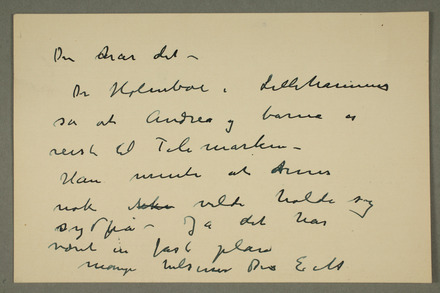 Du har det –
Dr Holmboe i Lillehammer
sa at Andrea og barna er
reist til Telemarken –
Han mente at
nok vilde holde sig
syd på – Ja det har
vært en fast plan
mange hilsener Din E M